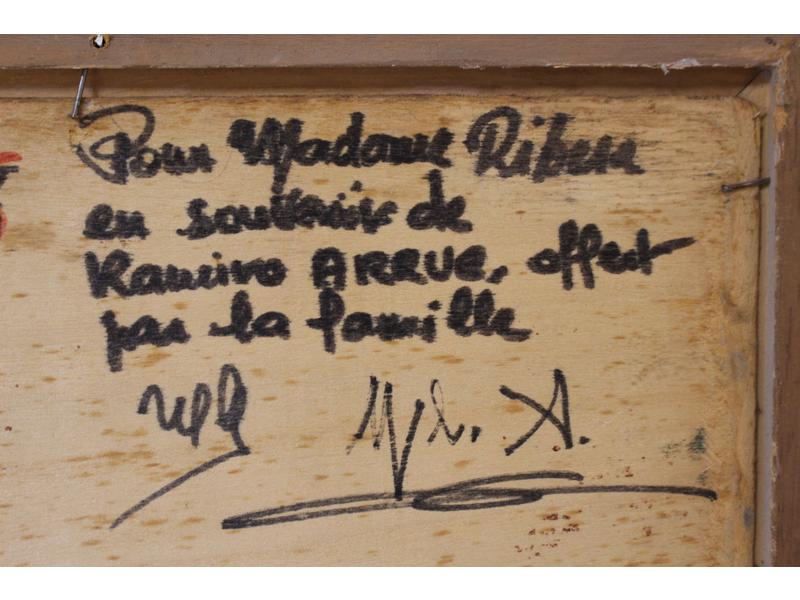 Pour Madame
en souvenir de
Ramiro ARRUE, offert
par la famille
A.